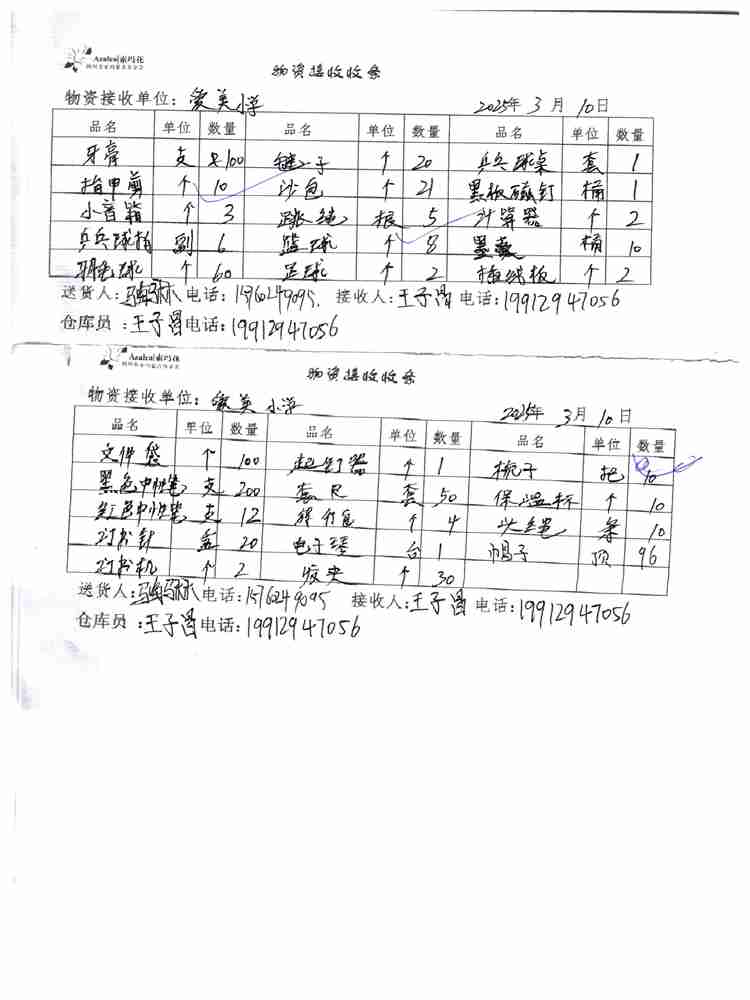 Azalea|索玛花
物资接收收条
物资接收单位：爱美小学 2025年3月10日
品名 单位 数量 品名 单位 数量 品名 单位 数量
牙膏 支 100 毽子 个 20 乒乓球桌 套 1
指甲剪 个 10 沙包 个 21 黑板磁钉 桶 1
小音箱 个 3 跳绳 根 5 计算器 个 2
乒乓球拍 副 6 篮球 个 8 桶 10
羽毛球 个 60 足球 个 2 插线板 个 2
送货人： 电话：15760249095. 接收人：王子昌 电话：19912947056
仓库员：王子昌 电话：19912947056
Azalea|索玛花
物资接收收条
物资接收单位：爱美小学 2025年3月10日
品名 单位 数量 品名 单位 数量 品名 单位 数量
文件袋 个 100 起钉器 个 1 梳子 把 10
黑色中性笔 支 200 套尺 套 50 保温杯 个 10
红色中性笔 支 12 个 4 头绳 条 10
订书针 盒 20 电子琴 台 1 帽子 顶 96
订书机 个 2 发夹 个 30
送货人： 电话：15760249095 接收人：王子昌 电话：19912947056
仓库员：王子昌 电话：19912947056